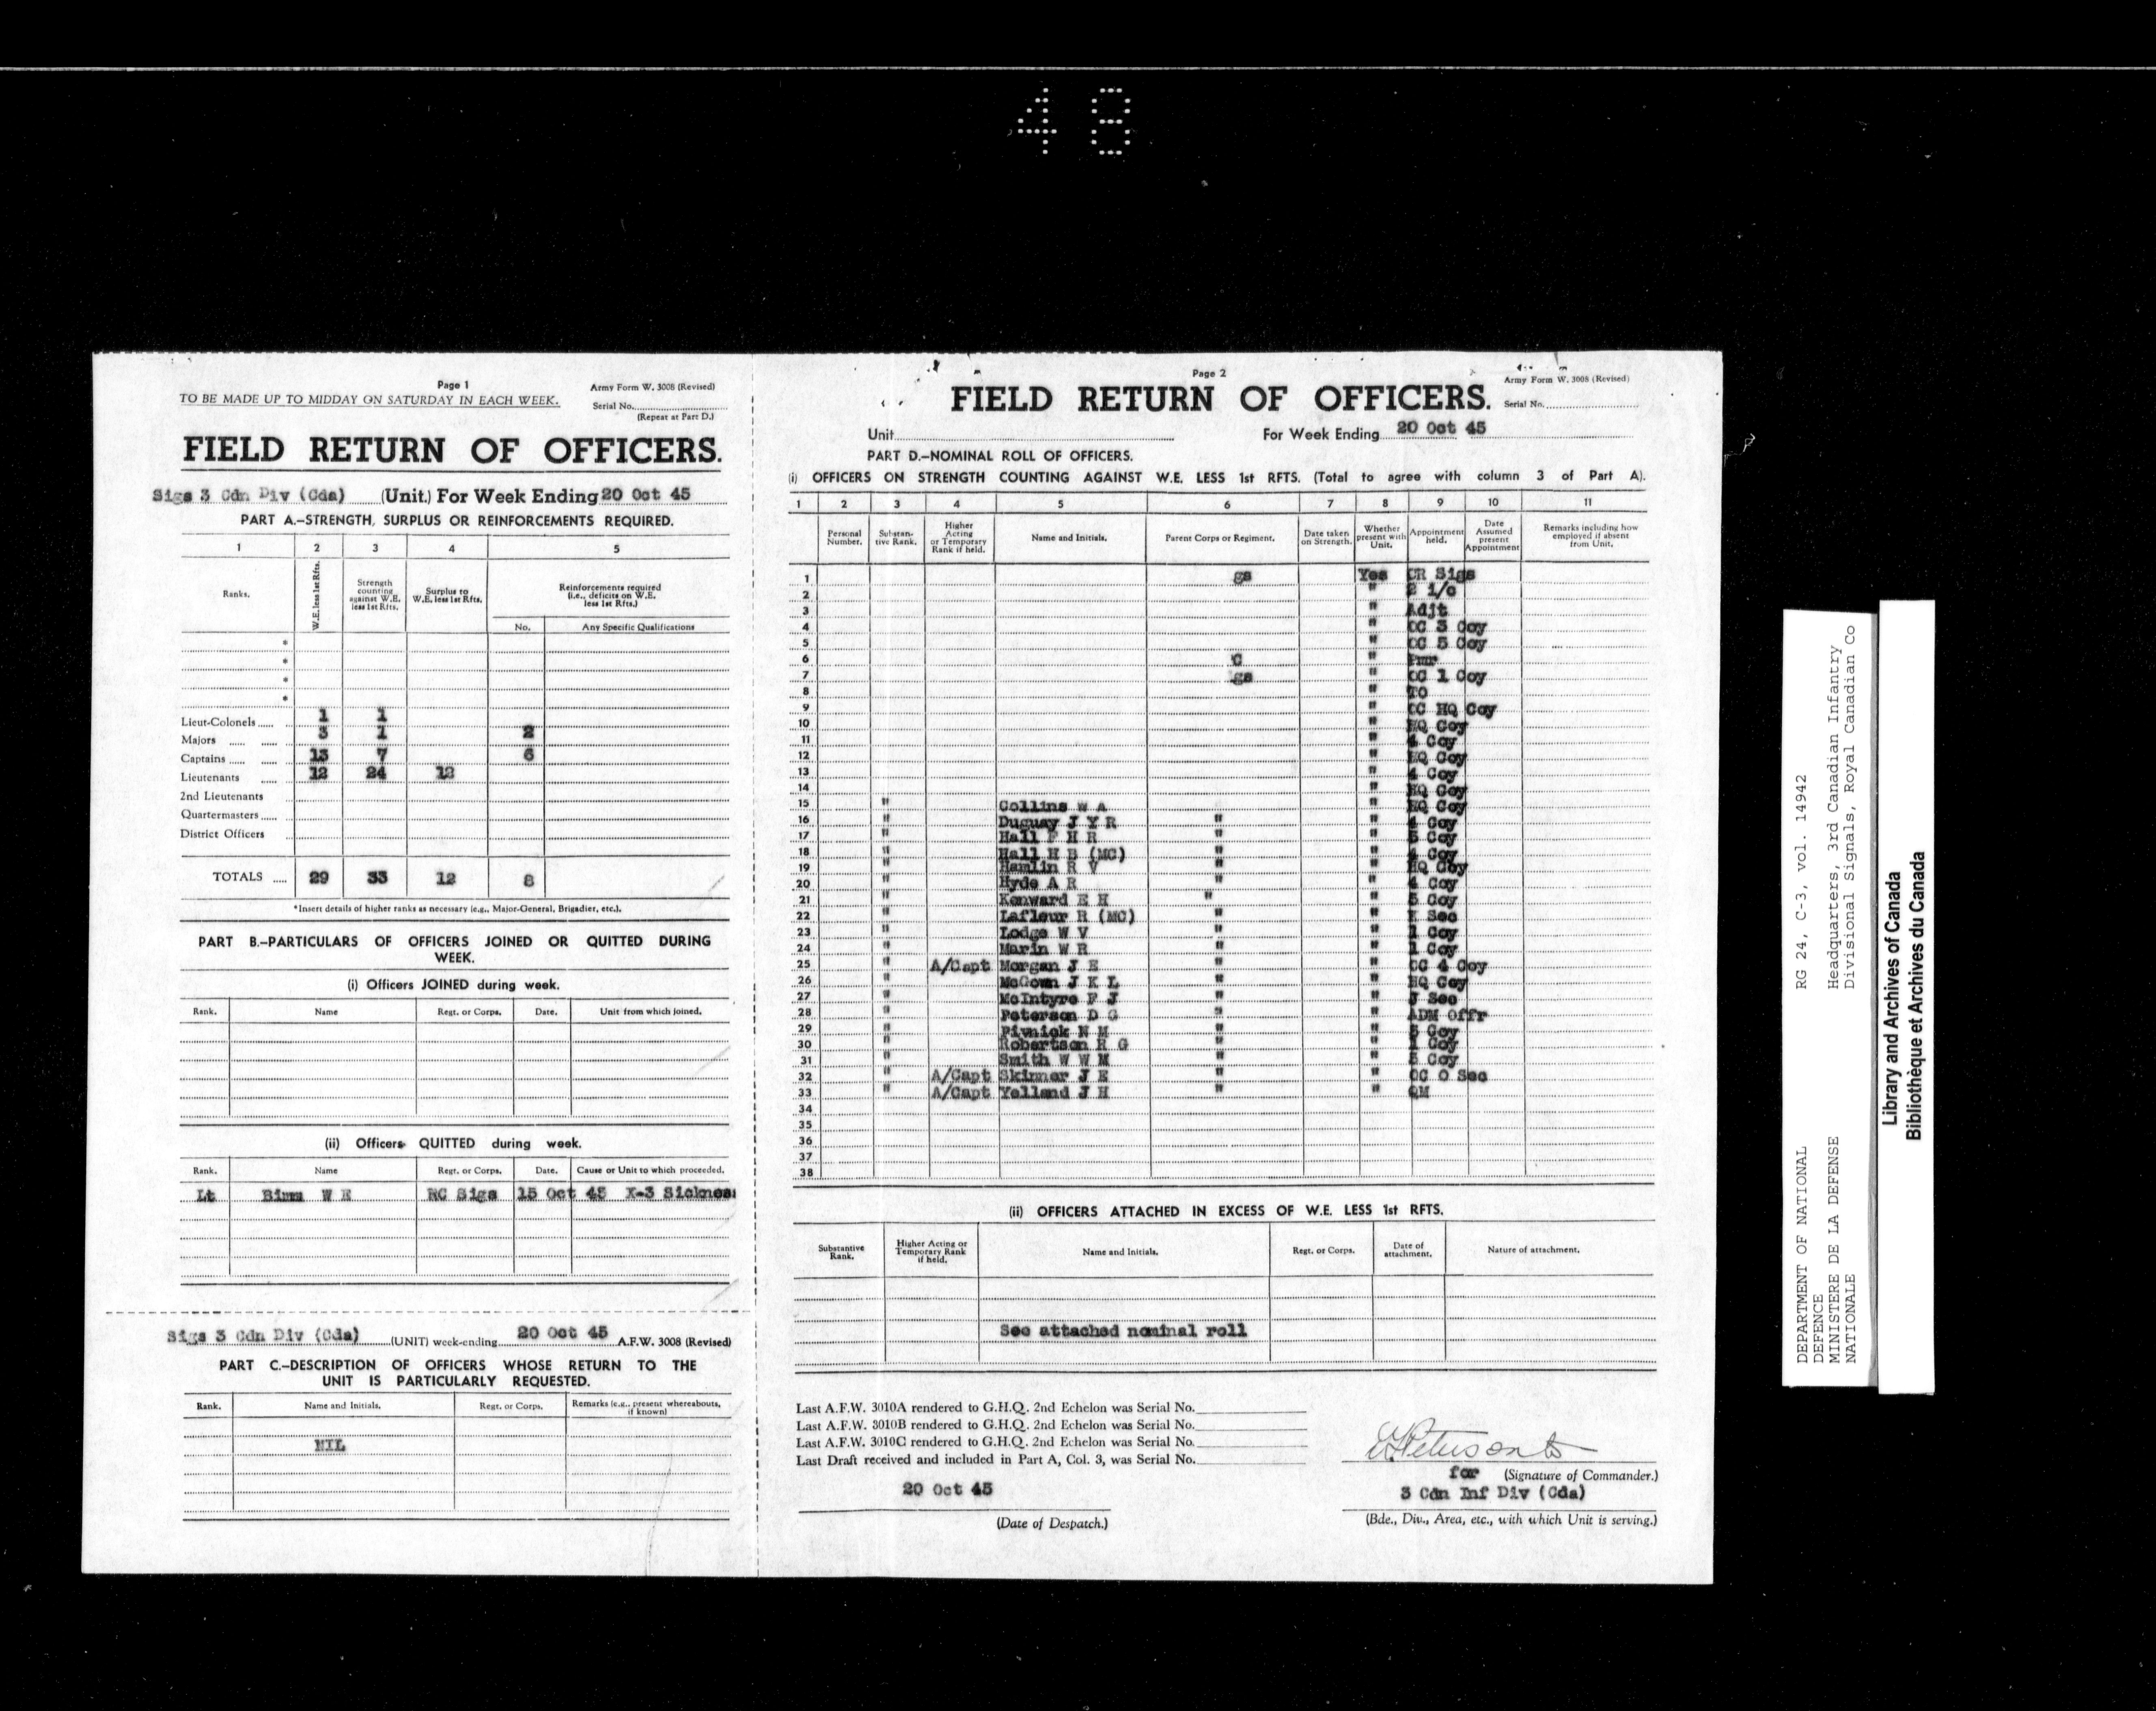 48
Page 1
TO BE MADE UP TO MIDDAY ON SATURDAY IN EACH WEEK.
Army Form W. 3008 (Revised)
Serial No.
(Repeat at Part D.)
FIELD RETURN OF OFFICERS.
Sigs 3 Cdn Div (Cda) (Unit.) For Week Ending 20 Oct 45
PART A.–STRENGTH, SURPLUS OR REINFORCEMENTS REQUIRED.
1 2 3 4 5
Ranks.
W.E. less 1st Rfts.
Strength counting against W.E. less 1st Rfts.
Surplus to W.E. less 1st Rfts.
Reinforcements required (i.e., deficits on W.E. less 1st Rfts.)
No. Any Specific Qualifications
*
*
*
*
Lieut-Colonels 1 1
Majors 3 1 2
Captains 13 7 6
Lieutenants 12 24 12
2nd Lieutenants
Quartermasters
District Officers
TOTALS 29 33 12 8
*Insert details of higher ranks as necessary (e.g., Major-General, Brigadier, etc.).
PART B.–PARTICULARS OF OFFICERS JOINED OR QUITTED DURING
WEEK.
(i) Officers JOINED during week.
Rank. Name Regt. or Corps. Date. Unit from which joined.
(ii) Officers QUITTED during week.
Rank. Name Regt. or Corps. Date. Cause or Unit to which proceeded.
Lt W E RC Sigs 15 Oct 45 X-3 Sickness
Sigs 3 Cdn Div (Cda) (UNIT) week-ending 20 Oct 45 A.F.W. 3008 (Revised)
PART C.–DESCRIPTION OF OFFICERS WHOSE RETURN TO THE
UNIT IS PARTICULARLY REQUESTED.
Rank. Name and Initials. Regt. or Corps. Remarks (e.g., present whereabouts, if known)
NIL
Page 2
Army Form W. 3008 (Revised)
FIELD RETURN OF OFFICERS. Serial No.
Unit For Week Ending 20 Oct 45
PART D.–NOMINAL ROLL OF OFFICERS.
(i) OFFICERS ON STRENGTH COUNTING AGAINST W.E. LESS 1st RFTS. (Total to agree with column 3 of Part A).
1 2 3 4 5 6 7 8 9 10 11
Personal Number.
Substantive Rank.
Higher Acting or Temporary Rank if held.
Name and Initials.
Parent Corps or Regiment.
Date taken on Strength.
Whether present with Unit.
Appointment held.
Date Assumed present Appointment
Remarks including how employed if absent from Unit.
1 gs Yes CR Sigs
2 " 2 i/c
3 " Adjt
4 " OC 3 Coy
5 " OC 5 Coy
6 C " Pmr
7 gs " OC 1 Coy
8 " TO
9 " OC HQ Coy
10 " HQ Coy
11 " 4 Coy
12 " HQ Coy
13 " 4 Coy
14 " HQ Coy
15 " Collins W A " HQ Coy
16 " Duguay J Y R " " 4 Coy
17 " Hall F H R " " 5 Coy
18 " Hall H B (MC) " " 4 Coy
19 " Hamlin R V " " HQ Coy
20 " Hyde A R " " 4 Coy
21 " Kenward E H " " 5 Coy
22 " Lafleur R (MC) " " Sec
23 " Lodge W V " " 1 Coy
24 " Marin W R " " 1 Coy
25 " A/Capt Morgan J E " " OC 4 Coy
26 " McGown J K L " " HQ Coy
27 " McIntyre F J " " J Sec
28 " Peterson D G " " ADM Offr
29 " Pivnick N M " " 5 Coy
30 " Robertson R G " " 1 Coy
31 " Smith W W M " " 5 Coy
32 " A/Capt Skinner J E " " OC O Sec
33 " A/Capt Yelland J H " " QM
34
35
36
37
38
(ii) OFFICERS ATTACHED IN EXCESS OF W.E. LESS 1st RFTS.
Substantive Rank. Higher Acting or Temporary Rank if held. Name and Initials. Regt. or Corps. Date of attachment. Nature of attachment.
See attached nominal roll
Last A.F.W. 3010A rendered to G.H.Q. 2nd Echelon was Serial No.
Last A.F.W. 3010B rendered to G.H.Q. 2nd Echelon was Serial No.
Last A.F.W. 3010C rendered to G.H.Q. 2nd Echelon was Serial No.
Last Draft received and included in Part A, Col. 3, was Serial No.
20 Oct 45
(Date of Despatch.)
for (Signature of Commander.)
3 Cdn Inf Div (Cda)
(Bde., Div., Area, etc., with which Unit is serving.)
DEPARTMENT OF NATIONAL
DEFENCE
MINISTERE DE LA DEFENSE
NATIONALE
RG 24, C-3, vol. 14942
Headquarters, 3rd Canadian Infantry
Divisional Signals, Royal Canadian Co
Library and Archives of Canada
Bibliothèque et Archives du Canada